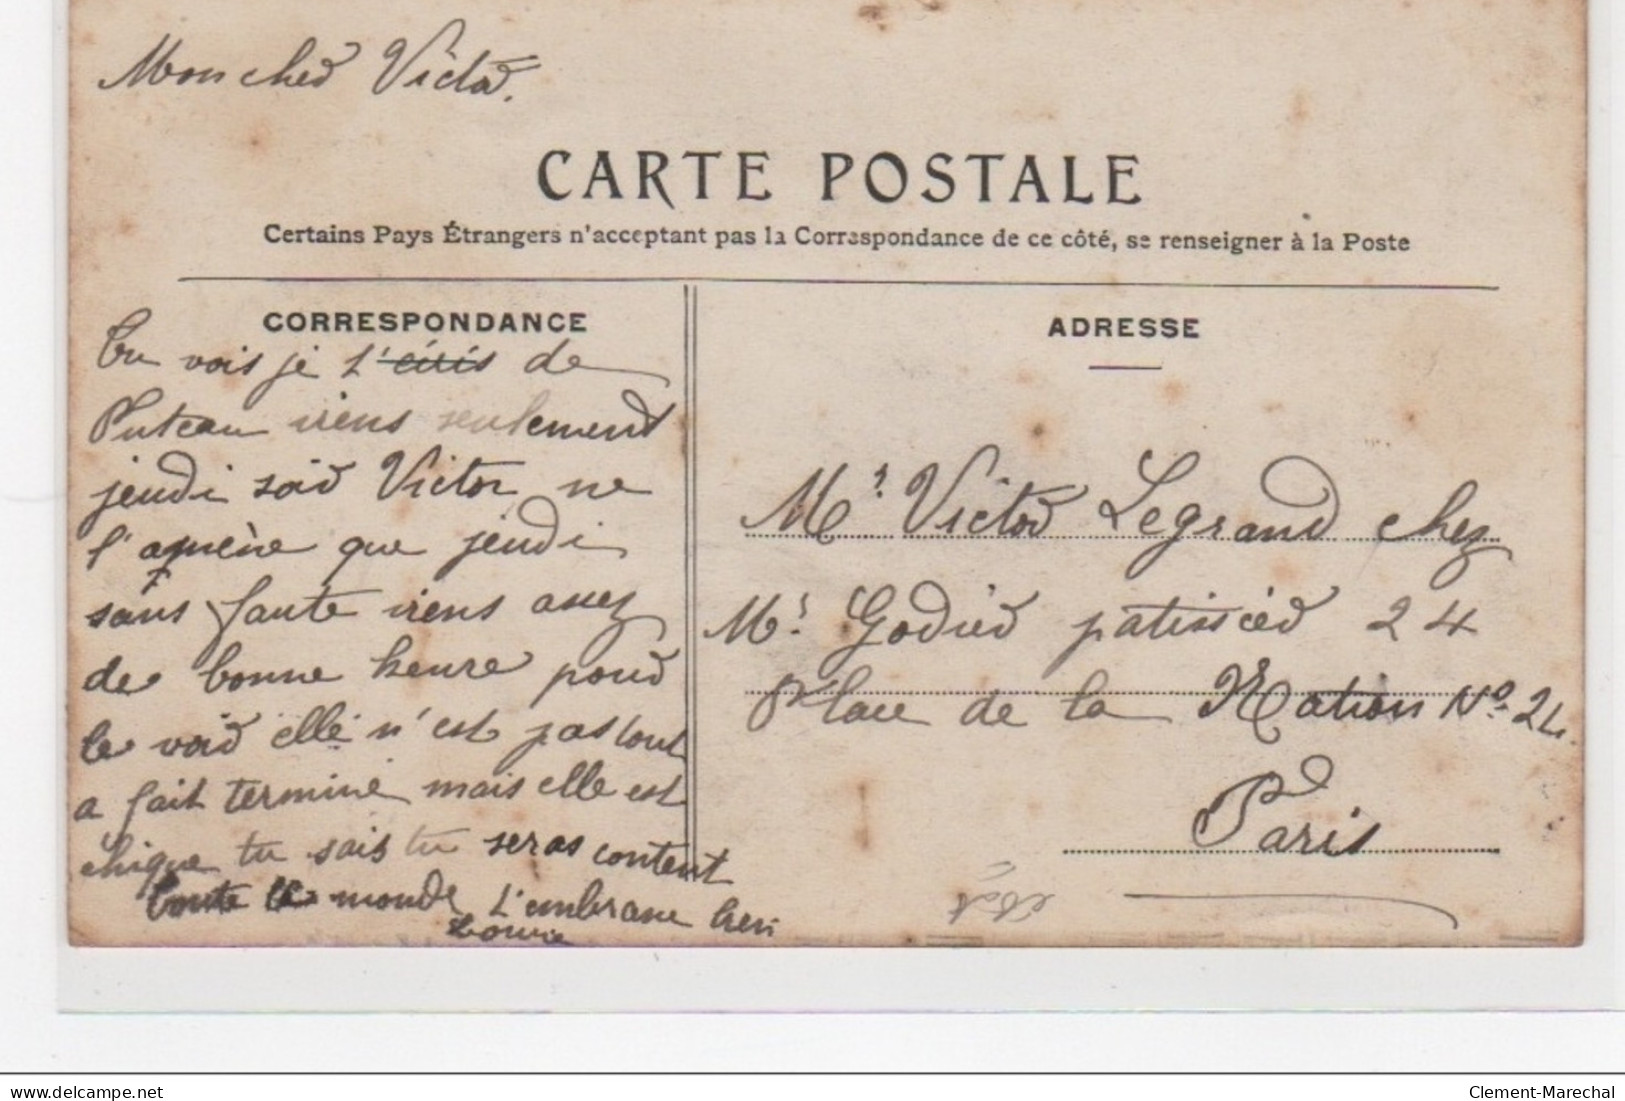 Mon cher Victor.
CARTE POSTALE
Certains Pays Étrangers n'acceptant pas la Correspondance de ce côté, se renseigner à la Poste
CORRESPONDANCE
Tu vois je t'écris de
Puteau viens seulement
jeudi soir Victor ne
l'amène que jeudi
sans faute viens assez
de bonne heure pour
le voir elle n'est pas tout
a fait terminé mais elle est
chique tu sais tu seras content
toute le monde t'embrasse bien
ADRESSE
Mr Victor Legrand chez
Mr Godier patissier 24
Place de la Nation No 24
Paris
delcampe.net
Clement-Marechal